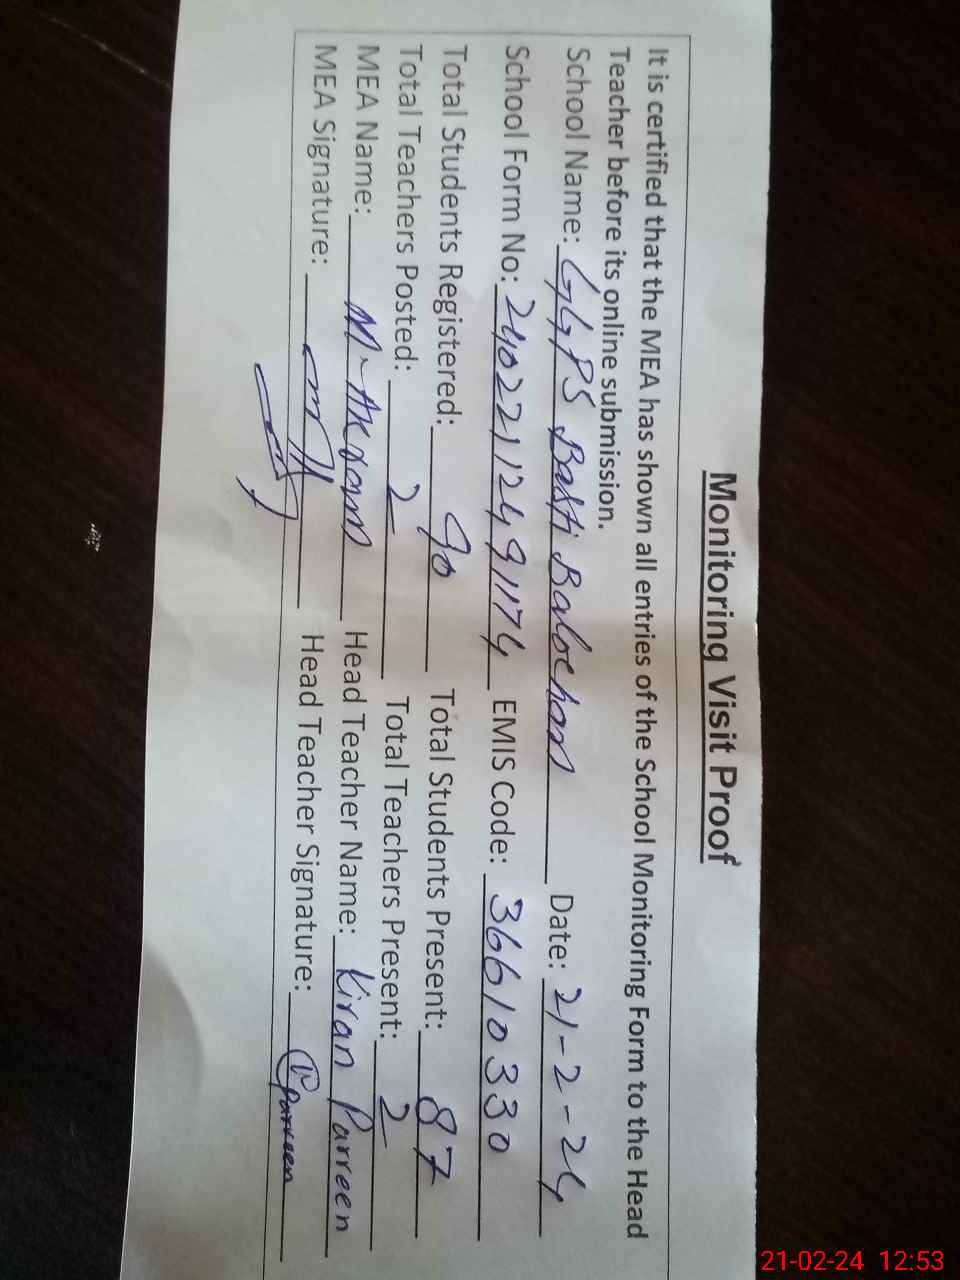 Monitoring Visit Proof
It is certified that the MEA has shown all entries of the School Monitoring Form to the Head
Teacher before its online submission.
School Name: GGPS Basti Balochan Date: 21-2-24
School Form No: 24022112491174 EMIS Code: 36610330
Total Students Registered: 90 Total Students Present: 87
Total Teachers Posted: 2 Total Teachers Present: 2
MEA Name: M. Akram Head Teacher Name: Kiran Parveen
MEA Signature: Head Teacher Signature: Parveen
21-02-24 12:53